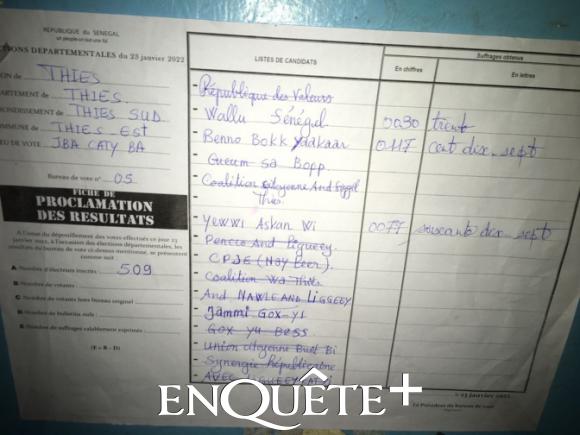 REPUBLIQUE DU SENEGAL
un peuple-un but-une foi
TIONS DEPARTEMENTALES du 23 janvier 2022
ON de THIES
ARTEMENT de THIES
ONDISSEMENT de THIES SUD
MMUNE de THIES EST
EU DE VOTE JBA CATY BA
Bureau de vote n° 05
FICHE DE
PROCLAMATION
DES RESULTATS
A l'issue du dépouillement des votes effectués ce jour 23
janvier 2022, à l'occasion des élections départementales, les
résultats du bureau de vote ci-dessus mentionné, se présentent
comme suit
A Nombre d'électeurs inscrits : 509
B Nombre de votants :
C Nombre de votants hors bureau originel :
D Nombre de bulletins nuls :
E Nombre de suffrages valablement exprimés :
(E = B - D)
LISTES DE CANDIDATS
Suffrages obtenus
En chiffres
En lettres
- République des Valeurs
- Wallu Sénégal 0030 trente
- Benno Bokk Yaakaar 0117 cent dix-sept
- Gueum sa Bopp
- Coalition citoyenne And
Thies
- Yewwi Askan Wi 0077 soixante dix-sept
- Pencoo And Liggeey
- CPJE (Nay Leer)
- Coalition Wa Thies
- And NAWLE AND LIGGEEY
- Jammi Gox-yi
- Gox yu Bess
- Union citoyenne Bunt Bi
- Synergie Républicaine
- AVEC
23 janvier 2022
Le Président du bureau de vote
ENQUÊTE+